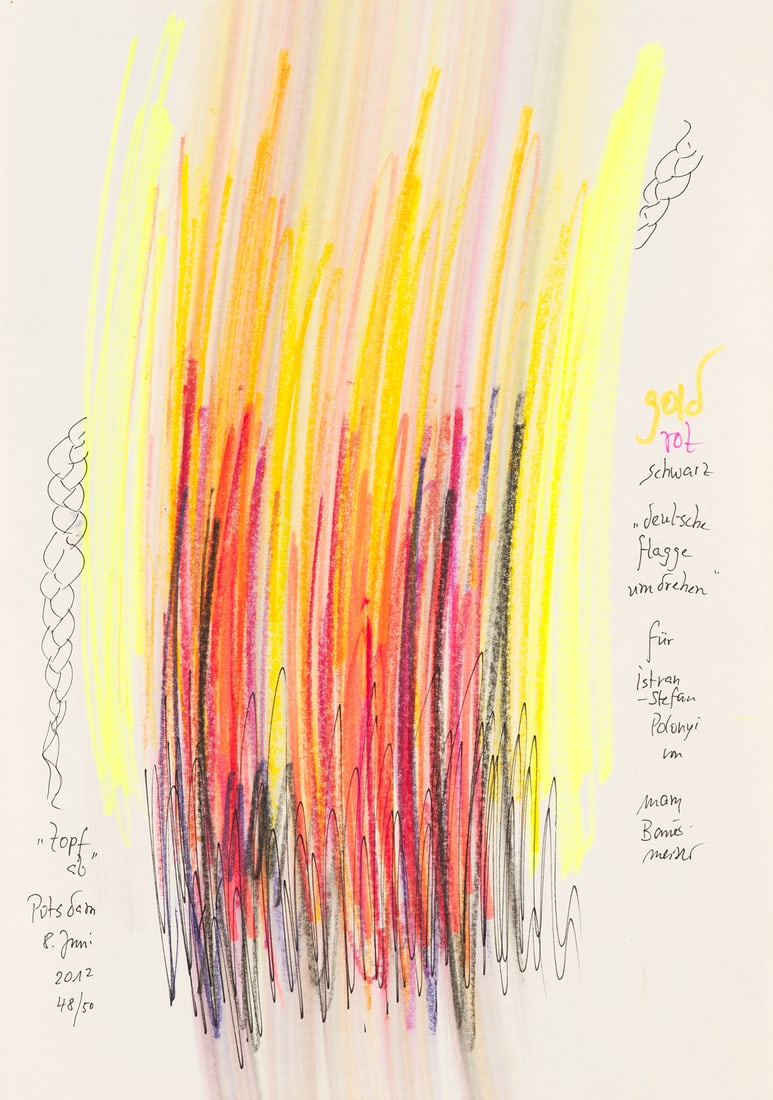 gold
rot
schwarz
„deutsche
flagge
umdrehen"
für
istvan
-Stefan
Polonyi
von
mary
Baumeis-
meister
„Zopf
ab"
Potsdam
8. Juni
2012
48/50